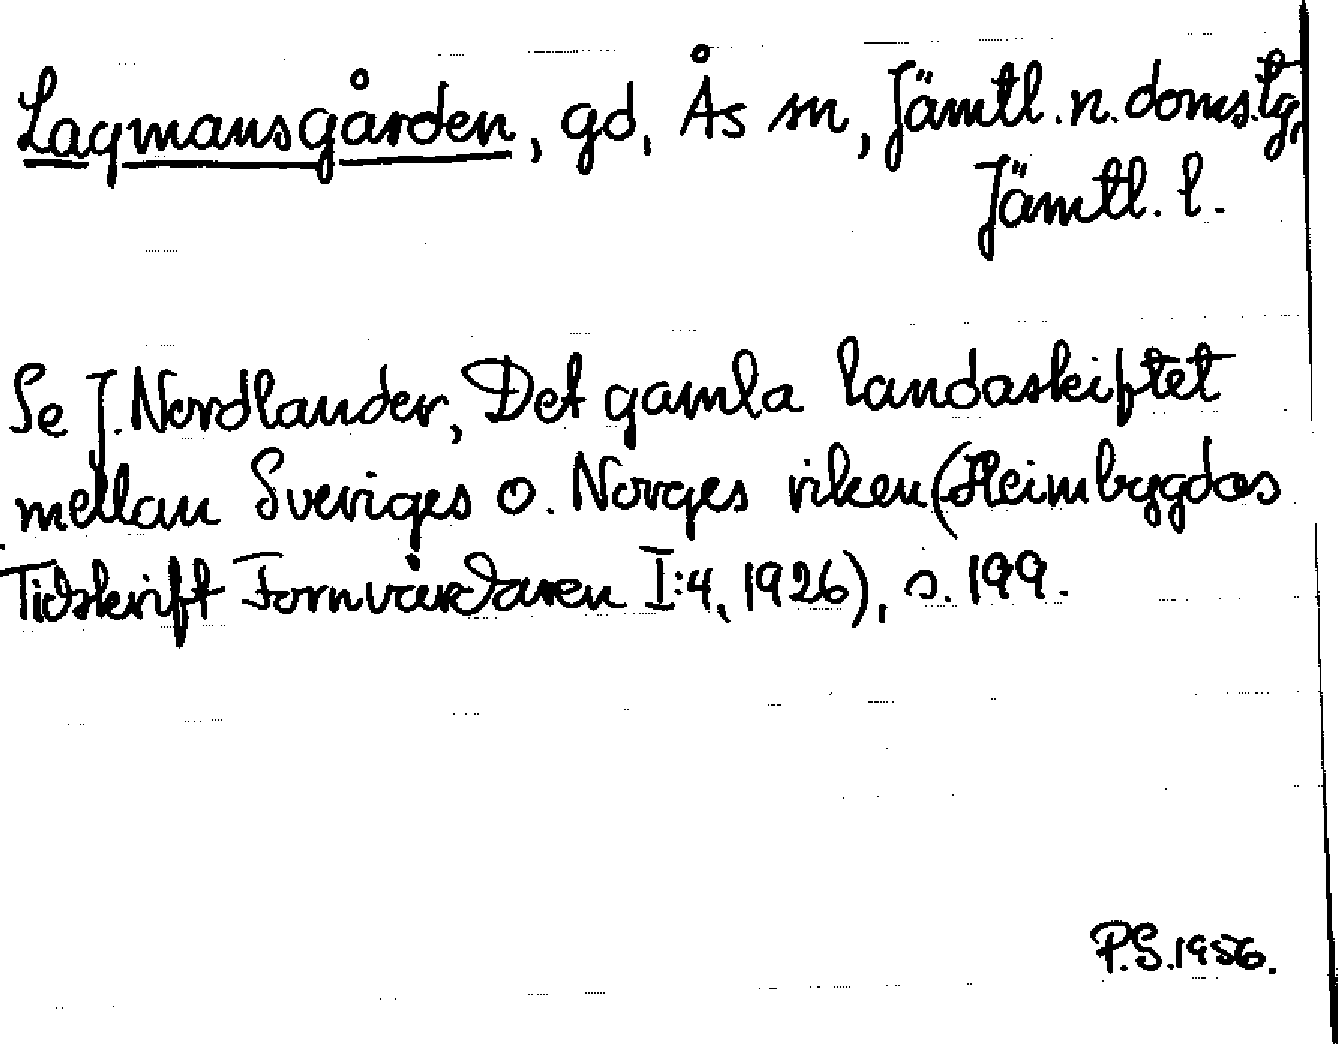 Lagmansgården, gd, Ås sn, Jämtl. n. doms.tg,
Jämtl. l.
Se J. Nordlander, Det gamla landaskiftet
mellan Sveriges o. Norges riken (Heimbygdas
Tidskrift Fornvårdaren I:4, 1926), s. 199.
P.S. 1956.